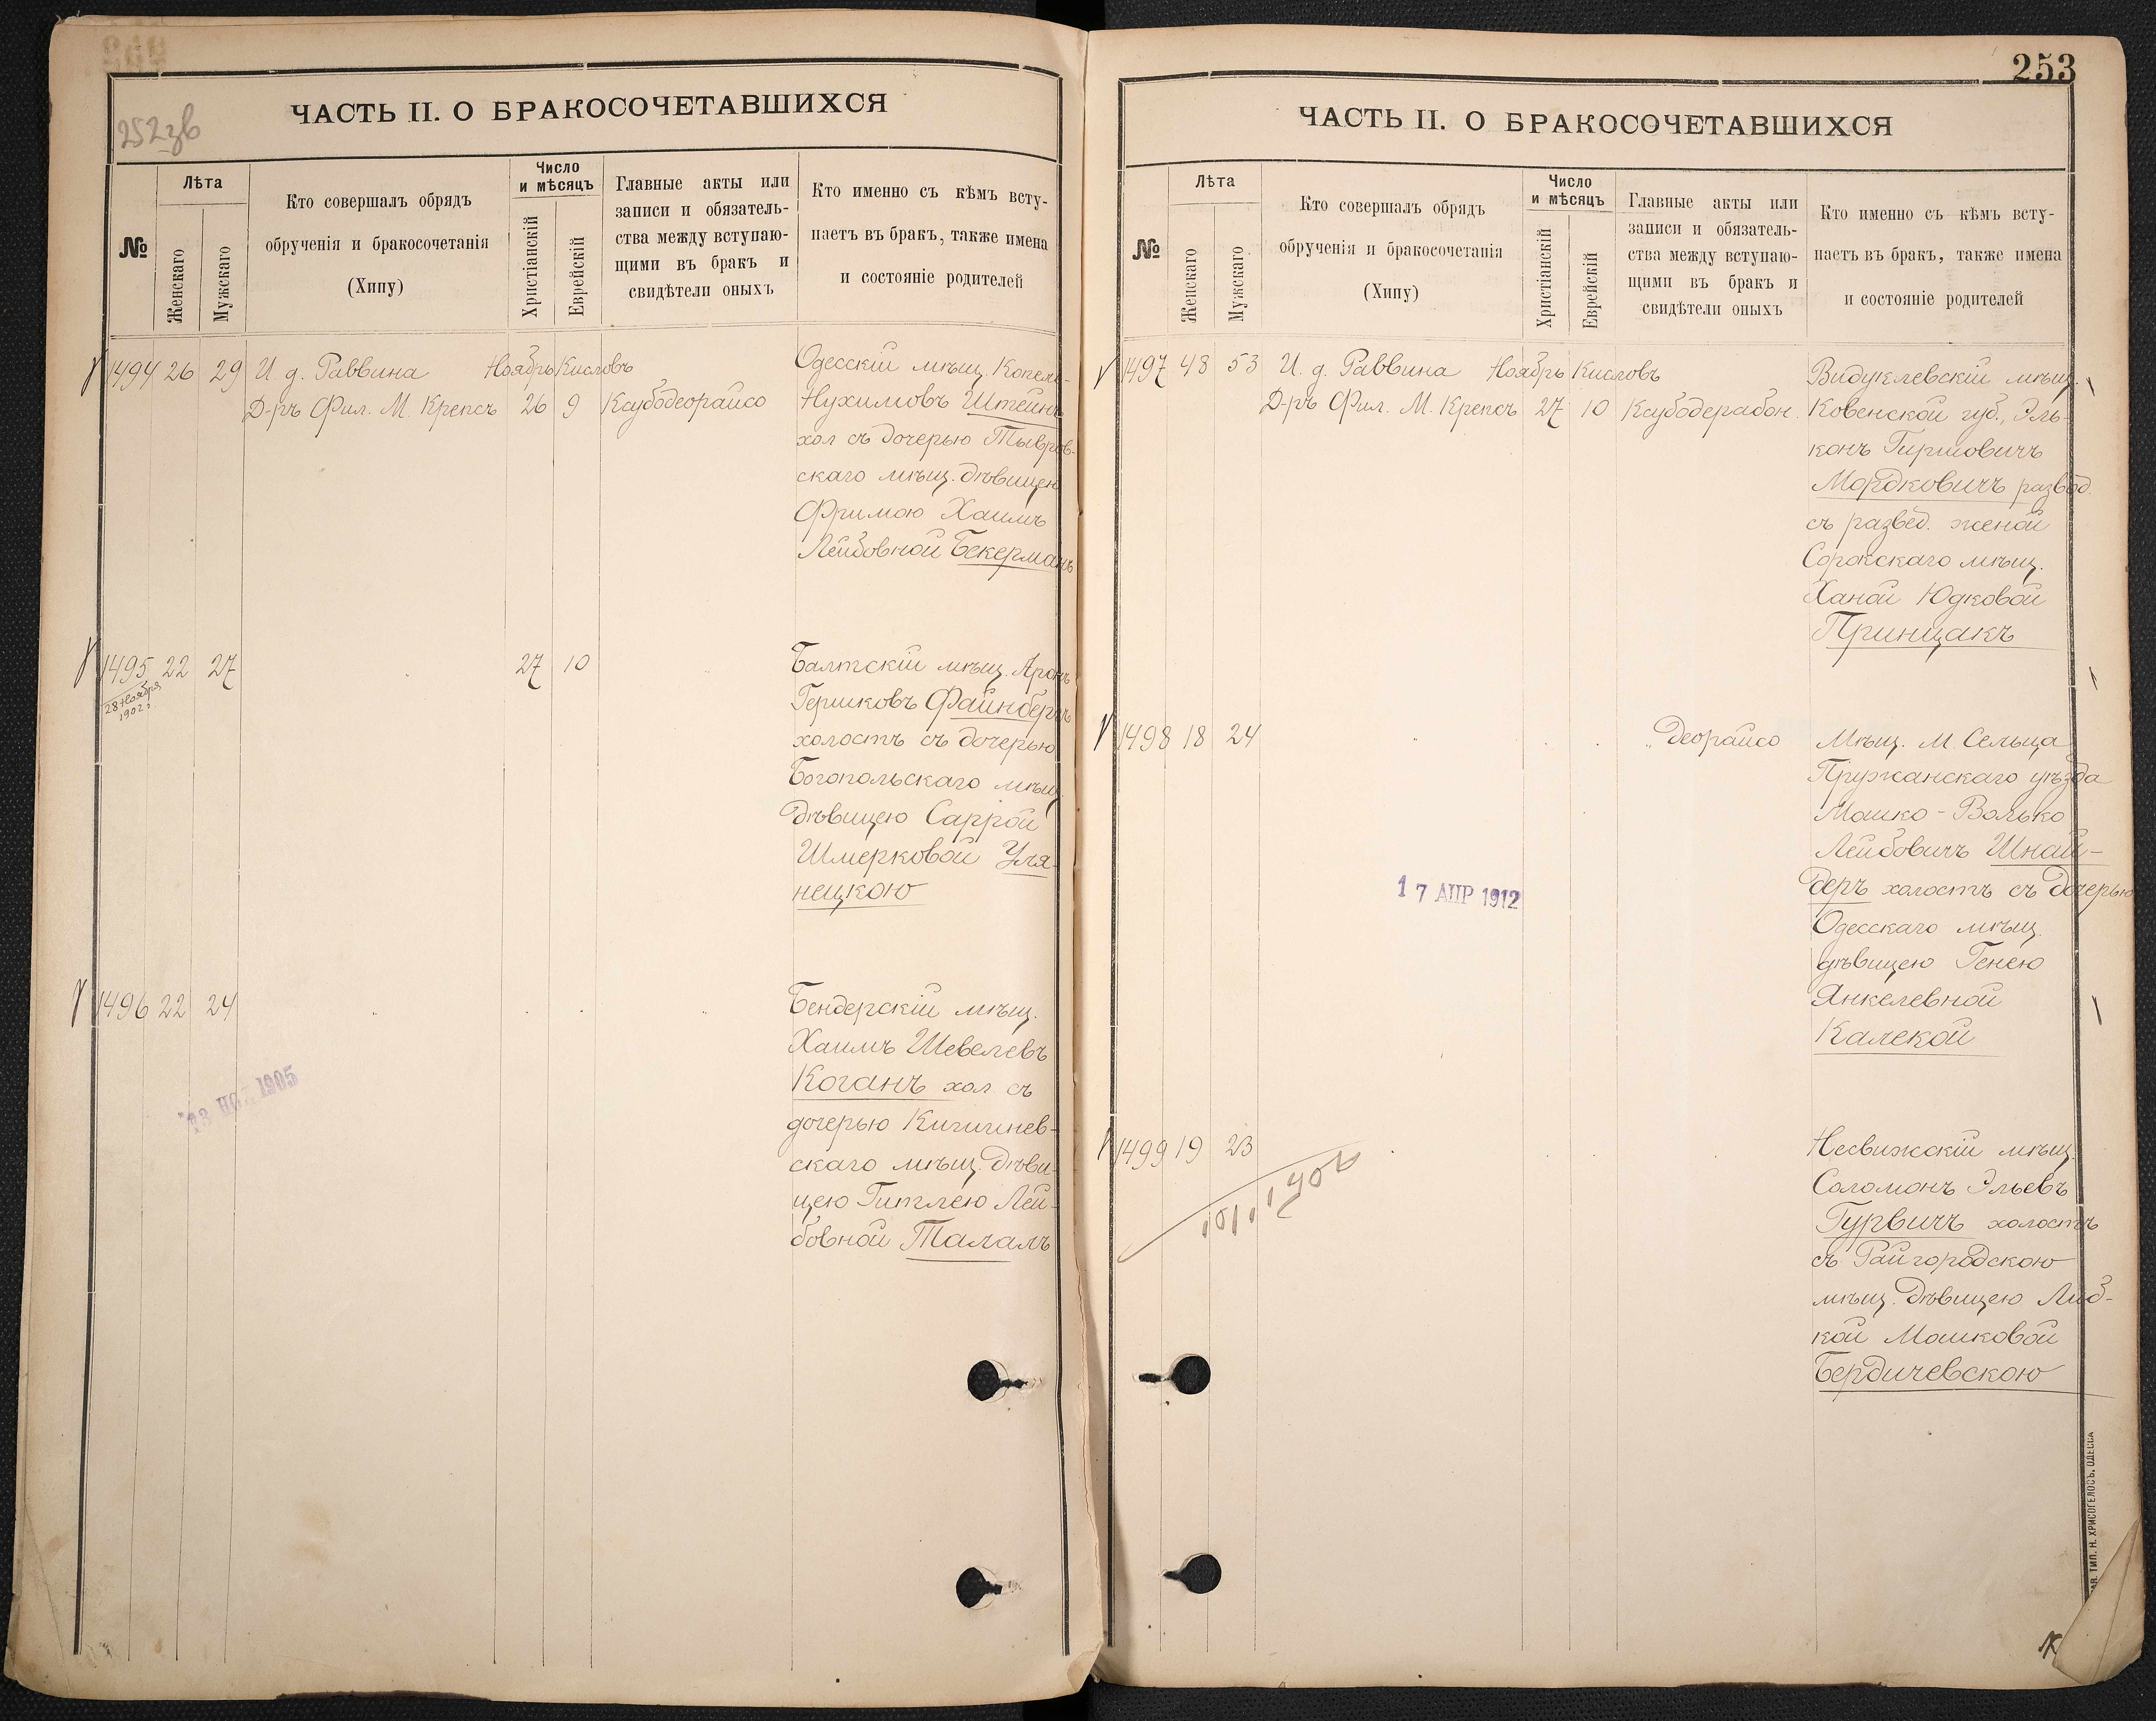 252зв
ЧАСТЬ II. О БРАКОСОЧЕТАВШИХСЯ
№
Лѣта
Женскаго
Мужскаго
Кто совершалъ обрядъ
обрученія и бракосочетанія
(Хипу)
Число
и мѣсяцъ
Христіанскій
Еврейскій
Главные акты или
записи и обязатель-
ства между вступаю-
щими въ бракъ и
свидѣтели оныхъ
Кто именно съ кѣмъ всту-
паетъ въ бракъ, также имена
и состояніе родителей
1494 26 29 И. д. Раввина Ноябрь Кисловъ
Д-ръ Фил. М. Крепсъ 26 9 Ксубодеорайсо
Одесскій мѣщ. Копель-
Нухимовъ Штейнъ
хол съ дочерью Тывров-
скаго мѣщ. дѣвицею
Фримою Хаимъ
Лейбовной Бекерманъ
1495 22 27 27 10
28 Ноября
1902 г.
Балтскій мѣщ. Аронъ
Гершковъ Файнбергъ
холостъ съ дочерью
Богопольскаго мѣщ
дѣвицею Саррой
Шмерковой Уля-
нецкою
1496 22 24
Бендерскій мѣщ.
Хаимъ Шевелевъ
Коганъ хол съ
дочерью Кишинев-
скаго мѣщ. дѣви-
цею Гитлею Лей-
бовной Талалъ
1905
253
ЧАСТЬ II. О БРАКОСОЧЕТАВШИХСЯ
№
Лѣта
Женскаго
Мужскаго
Кто совершалъ обрядъ
обрученія и бракосочетанія
(Хипу)
Число
и мѣсяцъ
Христіанскій
Еврейскій
Главные акты или
записи и обязатель-
ства между вступаю-
щими въ бракъ и
свидѣтели оныхъ
Кто именно съ кѣмъ всту-
паетъ въ бракъ, также имена
и состояніе родителей
1497 48 53 И. д. Раввина Ноябрь Кисловъ
Д-ръ Фил. М. Крепсъ 27 10 Ксубодерабон.
Видуклевскій мѣщ.
Ковенской губ., Эль-
конъ Гиршовичъ
Мордковичъ развод.
съ развед. женой
Сорокскаго мѣщ.
Ханой Юдковой
Принцакъ
1498 18 24 " деорайсо
Мѣщ. М. Сельца
Пружанскаго уѣзда
Мошко-Волько
Лейбовичъ Шнай-
деръ холостъ съ дочерью
Одесскаго мѣщ.
дѣвицею Генею
Янкелевной
Калекой
17 АПР 1912
1499 19 23
Несвижскій мѣщ.
Соломонъ Эльевъ
Гурвичъ холостъ
съ Райгородскою
мѣщ. дѣвицею Либ-
кой Мошковой
Бердичевскою
ТИП. Н. ХРИСОГЕЛОСЪ. ОДЕССА